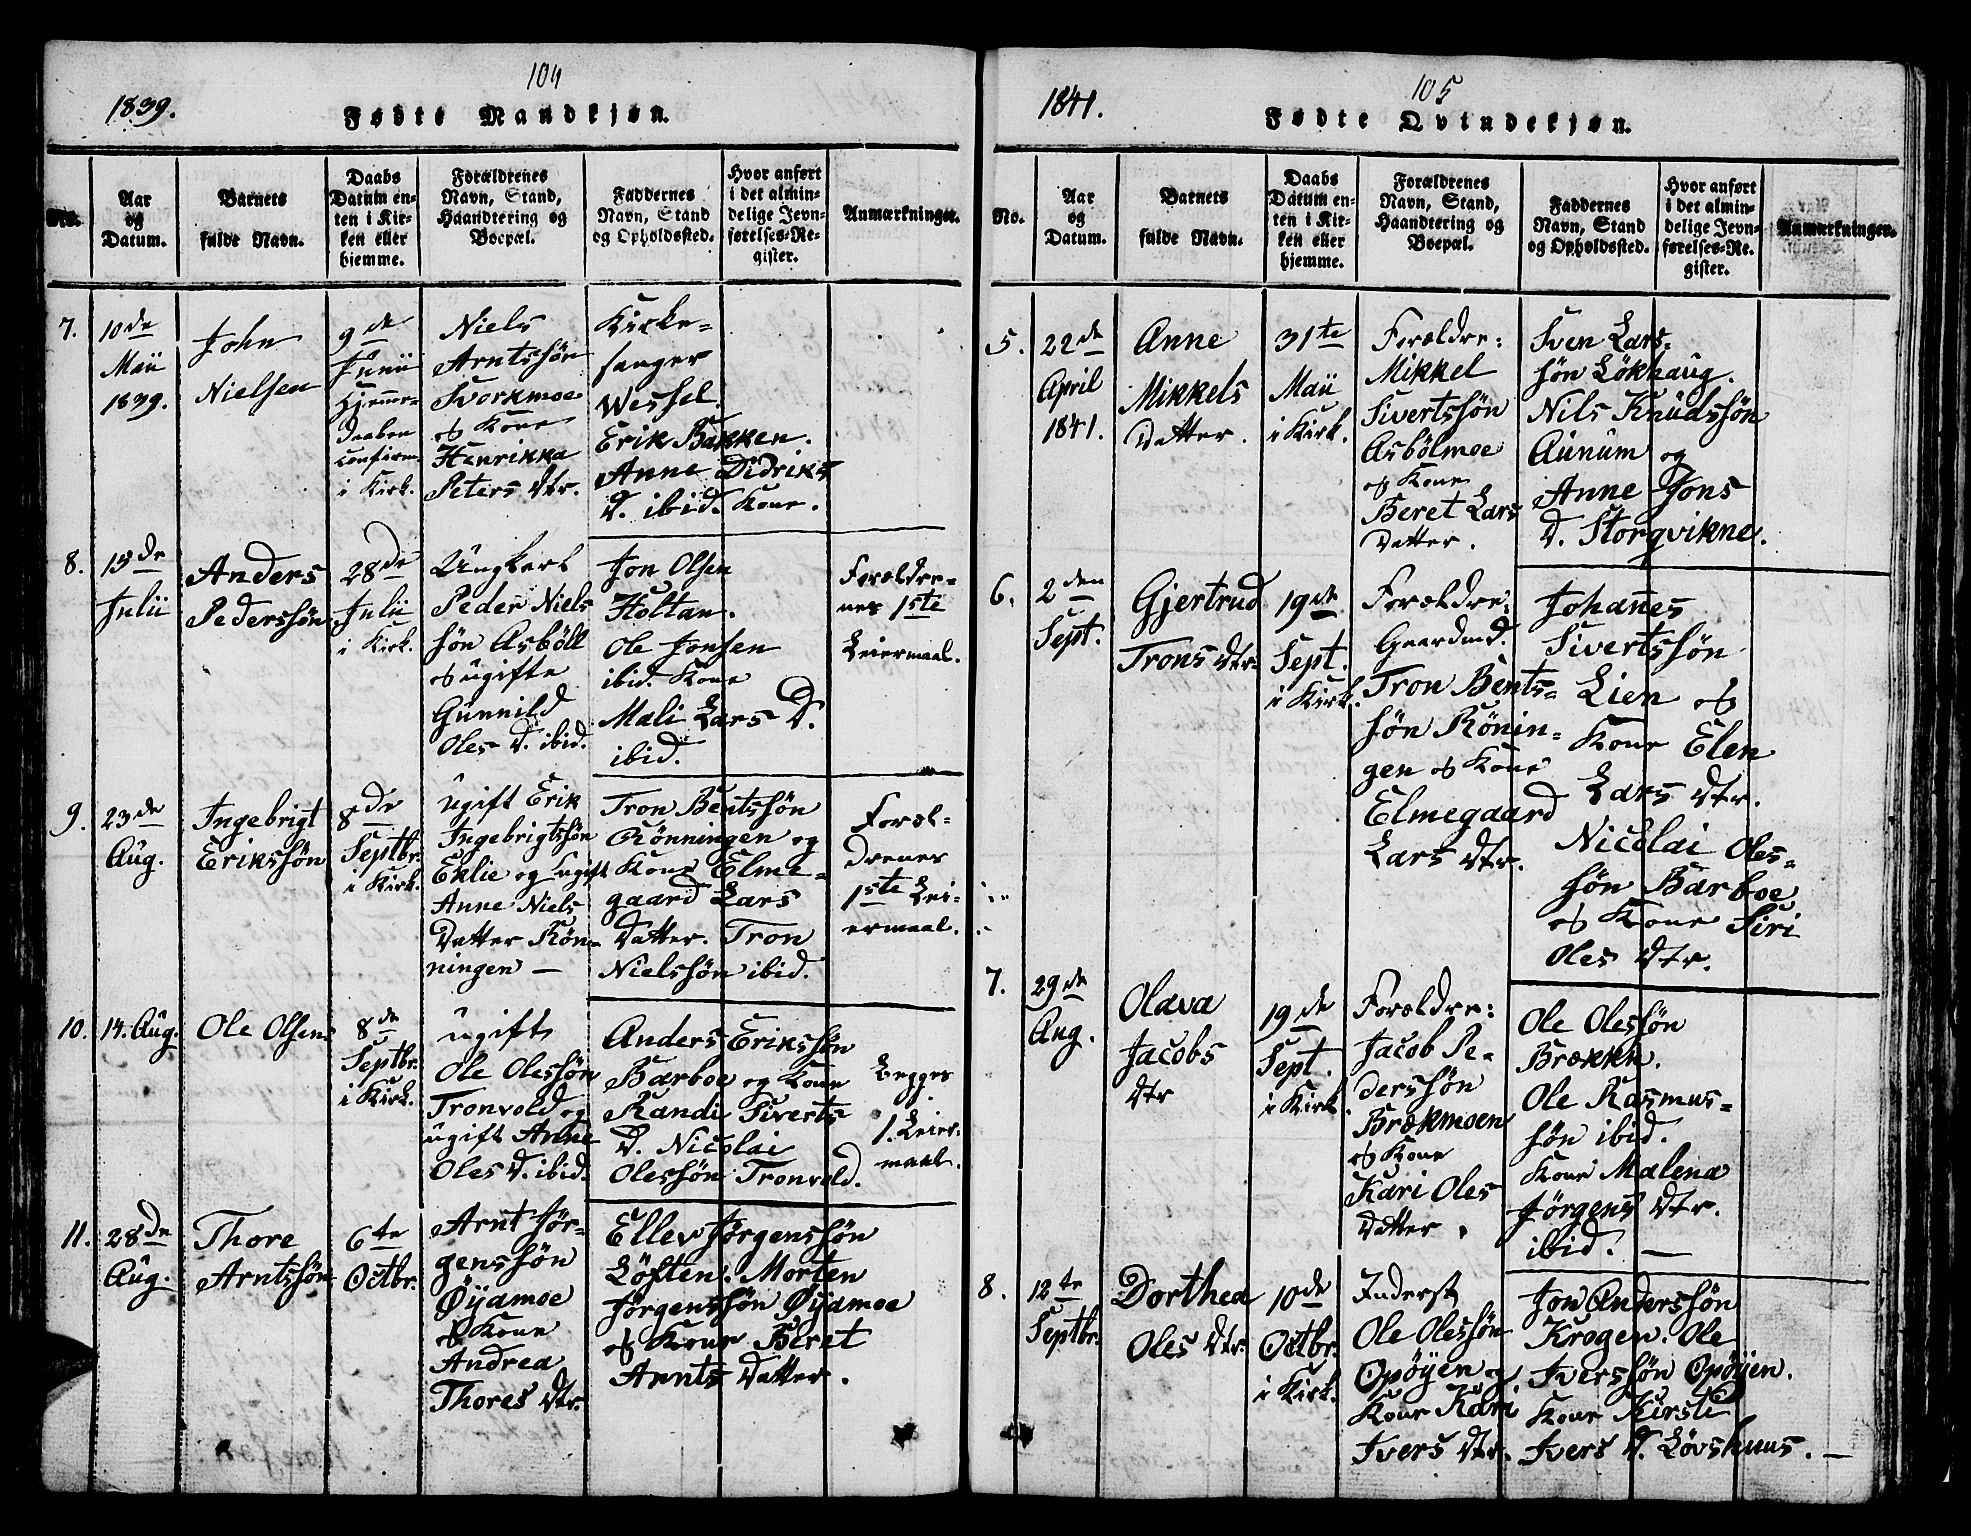 104
1839.
Fødte Mandkjøn.
No.
Aar
og
Datum.
Barnets
fulde Navn.
Daabs
Datum en-
ten i Kir-
ken eller
hjemme.
Forældrenes
Navn, Stand,
Haandtering og
Boepæl.
Faddernes
Navn, Stand
og Opholdssted.
Hvor anført
i det almin-
delige Jevn-
førelses-Re-
gister.
Anmærkninger.
7.
10de
Maii
1839.
John
Nielsen
9de
Junii
Hjemme-
daaben
confirm.
i Kirk.
Niels
Arntssøn
Svorkmoe
og Kone
Henrikka
Peters Dtr.
Kirke-
sanger
Wessel.
Erik Bakken.
Anne Didriks
D. ibid. Kone.
8.
15de
Julii
Anders
Pederssøn
28de
Julii
i Kirk.
Ungkarl
Peder Niels
søn Asböll
og ugifte
Gunnild
Oles D. ibid.
Jon Olsen
Holtan.
Ole Jonsen
ibid. Kone
Mali Lars D.
ibid.
Forældre-
nes 1ste
Leiermaal.
9.
23de
Aug.
Ingebrigt
Erikssøn
8de
Septbr.
i Kirk.
ugift Erik
Ingebrigtssøn
Eklie og ugift
Anne Niels
Datter Røn-
ningen —
Tron Bentssøn
Rønningen og
Kone Elme-
gaard Lars
Datter. Tron
Nielssøn ibid.
Foræl-
drenes
1ste Lei-
ermaal.
10.
14. Aug.
Ole Olsen
8de
Septbr.
i Kirk.
ugift
Ole Olessøn
Tronvold og
ugift Anne
Oles D. ibid.
Anders Erikssøn
Barboe og Kone
Randi Siverts
D. Nicolai
Olessøn Tronvold.
Begges
1. Leier-
maal.
11.
28de
Aug.
Thore
Arntssøn
6te
Octbr.
Arnt Jör-
genssøn
Öÿamoe
og Kone
Andrea
Thores Dtr.
Ellev Jørgenssøn
Löften. Morten
Jörgenssøn Öÿamoe
og Kone Beret
Arnts Datter.
105
1841.
Fødte Qvindekjøn.
No.
Aar
og
Datum.
Barnets
fulde Navn.
Daabs
Datum en-
ten i Kir-
ken eller
hjemme.
Forældrenes
Navn, Stand,
Haandtering og
Boepæl.
Faddernes
Navn, Stand
og Opholdssted.
Hvor anført
i det almin-
delige Jevn-
førelses-Re-
gister.
Anmærkninger.
5.
22de
April
1841.
Anne
Mikkels
Datter.
31te
Maii
i Kirk.
Forældre:
Mikkel
Sivertssön
Asbölmoe
og Kone
Beret Lars
Datter.
Sven Lars-
søn Lökhaug.
Nils Knudssøn
Aunum og
Anne Jons
D. Storqvikne.
6.
2den
Sept.
Gjertrud
Trons Dtr.
19de
Sept.
i Kirk.
Forældre:
Gaardmd.
Tron Bents-
søn Rönin-
gen og Kone
Elmegaard
Lars Dtr.
Johanes
Sivertssøn
Lien og
Kone Elen
Lars Dtr.
Nicolai Oles-
søn Barboe
og Kone Siri
Oles Dtr.
7.
29de
Aug.
Olava
Jacobs
Dtr
19de
Sept.
i Kirk.
Forældre:
Jacob Pe-
derssøn
Brækmoen
og Kone
Kari Oles
Datter.
Ole Olessøn
Brækkn.
Ole Rasmus-
søn ibid.
Kone Malena
Jörgens Dtr.
ibid. —
8.
12te
Septbr.
Dorthea
Oles Dtr.
10de
Octbr.
i Kirk.
Inderst
Ole Olessøn
Opöÿen og
Kone Kari
Ivers Dtr.
Jon Anderssøn
Krogen. Ole
Iverssøn Opöÿen.
Kone Kirsti
Ivers D. Lövshuus. —